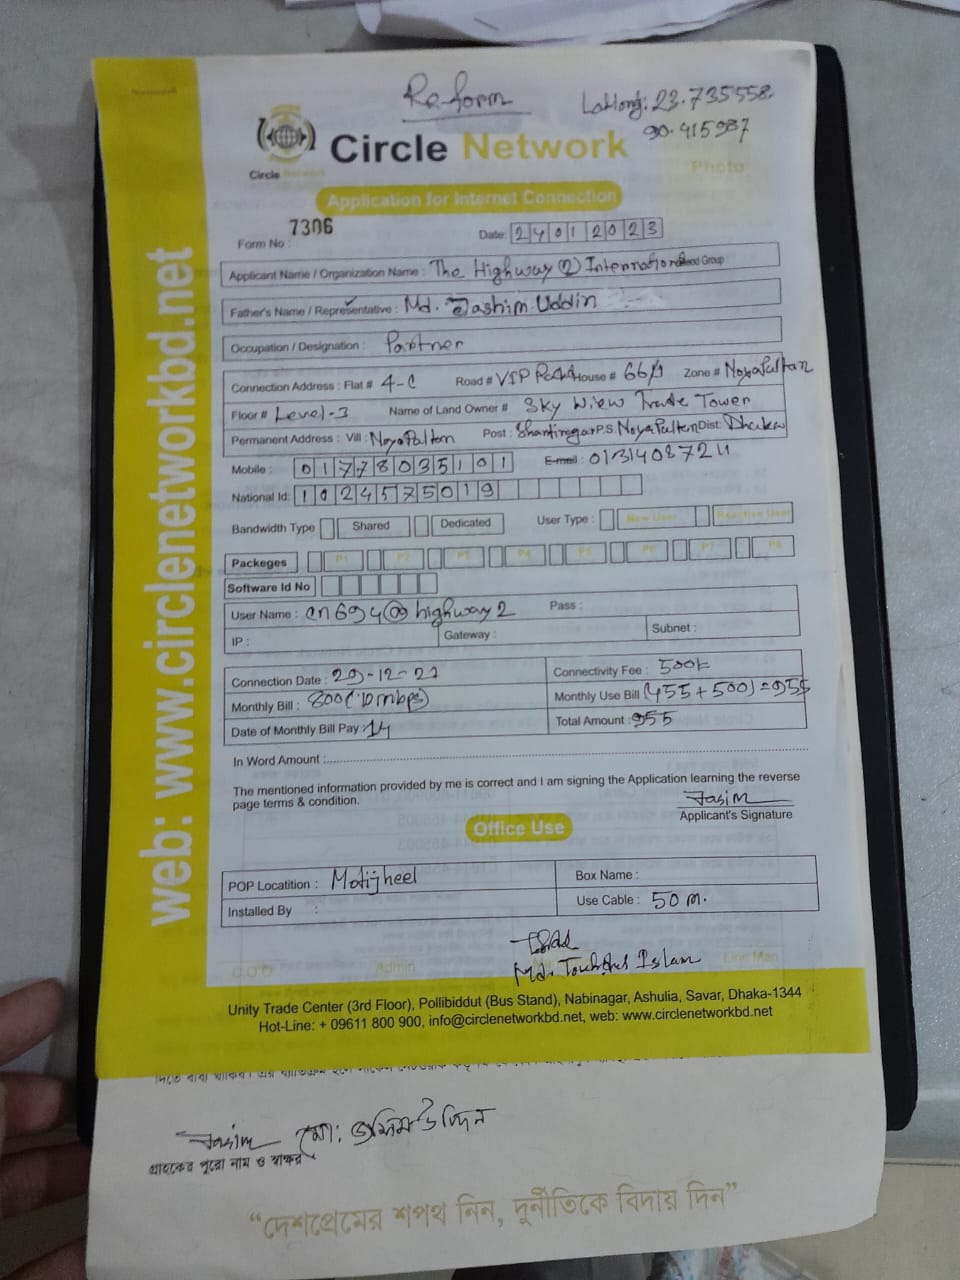 Re-form
LatLong: 23.735558.
90.415987
Circle Network
Circle Network
Photo
Application for Internet Connection
Form No : 7306
Date: 24012023
Applicant Name / Organization Name : The Highway (2) International Group
Father's Name / Representative : Md. Jashim Uddin
Occupation / Designation : Partner
Connection Address : Flat # 4-C Road # VIP Road House # 66/1 Zone # NoyaPaltan
Floor # Level-3 Name of Land Owner # Sky View Trade Tower
Permanent Address : Vill : NoyaPalton Post : Shantinagar P.S. NoyaPalton Dist: Dhaka
Mobile : 01778035101 E-mail :
National Id: 1024575019
Bandwidth Type Shared Dedicated User Type : New User Reactive User
Packeges P1 P2 P3 P4 P5 P6 P7 P8
Software Id No
User Name : cn694@highway2 Pass :
IP : Gateway : Subnet :
Connection Date : Connectivity Fee :
Monthly Bill : 800(10mbps) Monthly Use Bill (455+500)=955
Date of Monthly Bill Pay : 14 Total Amount : 955
In Word Amount :
The mentioned information provided by me is correct and I am signing the Application learning the reverse
page terms & condition.
Jasim
Applicant's Signature
Office Use
POP Locatition : Motijheel Box Name :
Installed By : Use Cable : 50 m.
Md. Islam
C.O.O Admin Line Man
Unity Trade Center (3rd Floor), Pollibiddut (Bus Stand), Nabinagar, Ashulia, Savar, Dhaka-1344
Hot-Line: + 09611 800 900, info@circlenetworkbd.net, web: www.circlenetworkbd.net
web: www.circlenetworkbd.net
Jasim মো: জসিম উদ্দিন
গ্রাহকের পুরো নাম ও স্বাক্ষর
“দেশপ্রেমের শপথ নিন, দুর্নীতিকে বিদায় দিন”